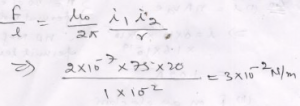 F/l = μ₀/2π i₁i₂/r
⇒ 2×10⁻⁷×75×20 / 1×10⁻² = 3×10⁻² N/m